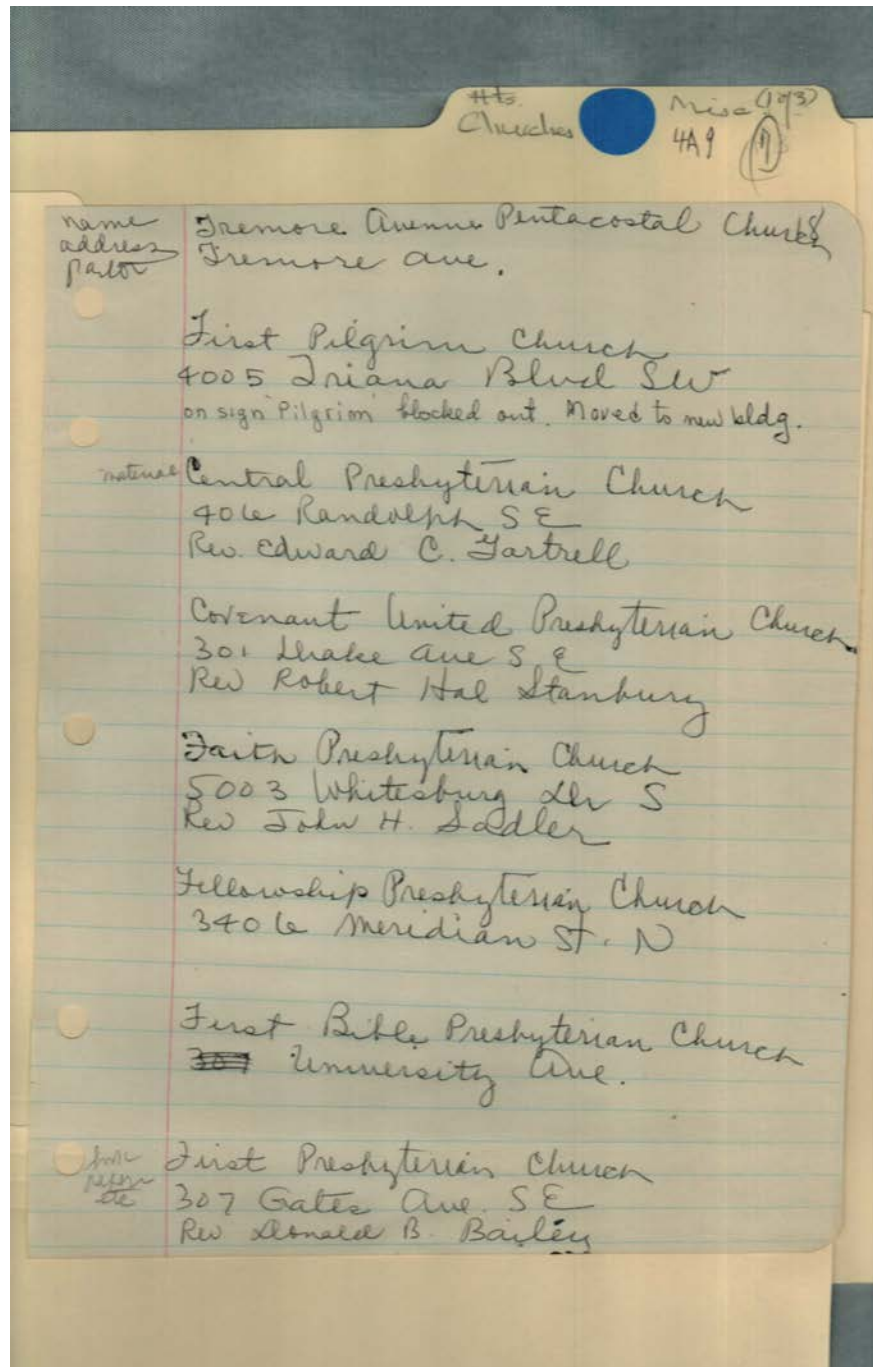 Hts.
Churches
Misc (1 of 3)
4A9
name
address
pastor
Tremore Avenue Pentacostal Church
Tremore Ave.
First Pilgrim Church
4005 Triana Blvd SW
on sign "Pilgrim" blocked out. Moved to new bldg.
material
Central Presbyterian Church
406 Randolph S E
Rev. Edward C. Gartrell
Covenant United Presbyterian Church
301 Drake Ave S E
Rev Robert Hal Stanbury
Faith Presbyterian Church
5003 Whitesburg Dr S
Rev John H. Sadler
Fellowship Presbyterian Church
3406 Meridian St. N
First Bible Presbyterian Church
307 University Ave.
First Presbyterian Church
307 Gates Ave. S E
Rev Donald B. Bailey